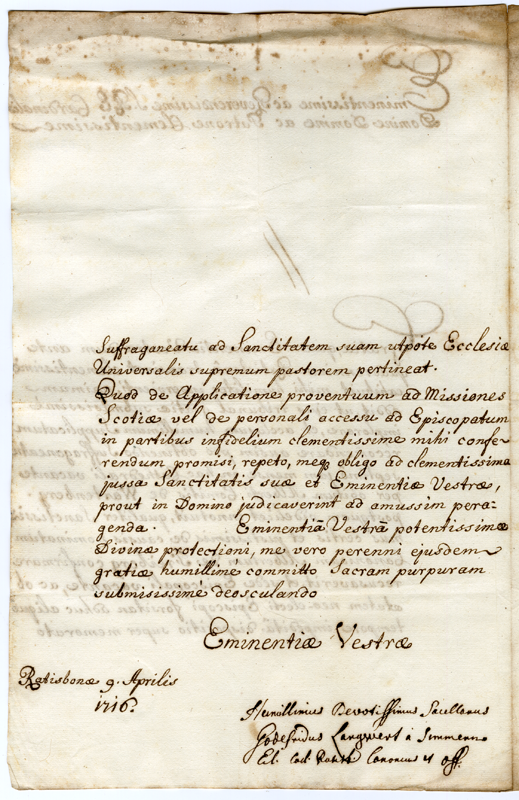 Suffraganeatu ad Sanctitatem suam utpote Ecclesiæ
Universalis supremum pastorem pertineat.
Quod de Applicatione proventuum ad Missiones
Scotiæ vel de personali accessu ad Episcopatum
in partibus infidelium clementissime mihi confe-
rendum, promisi, repeto, meq₃ obligo ad clementissima
jussa Sanctitatis suæ et Eminentiæ Vestræ,
prout in Domino judicaverint ad amussim pera-
genda. Eminentiā Vestrā potentissimæ
Divinæ protectioni, me vero perenni ejusdem
gratiæ humillime committo Sacram purpuram
submisissimé deosculando
Eminentiæ Vestræ
Ratisbonæ 9. Aprilis
1716.
Humillimus Devotissimus Sacellanus
Godefridus Langwert à Simmern
Canonicus